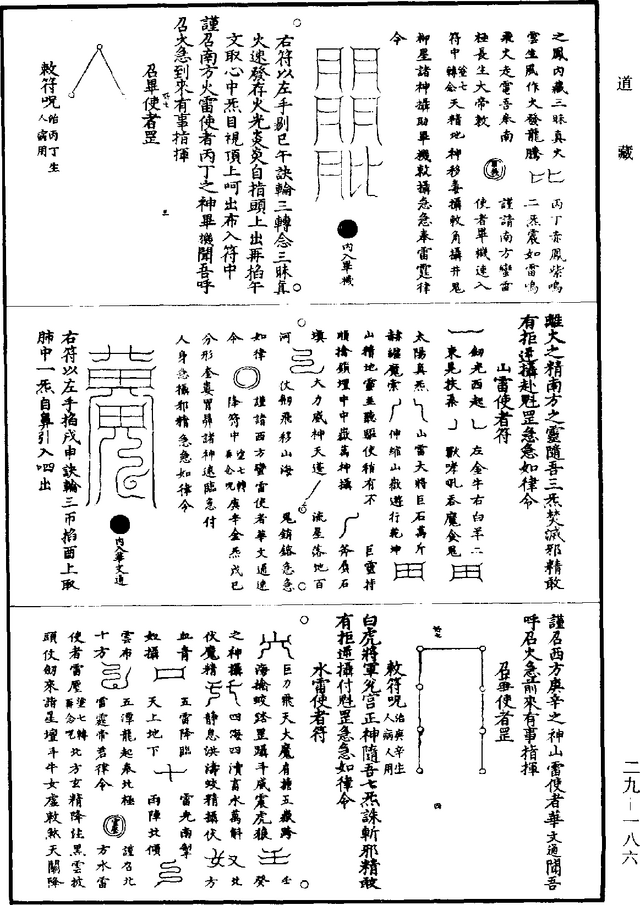 道藏
之鳳內藏三昧真火
丙丁赤鳳紫鳴
雲生風作大發龍騰
二炁震如雷鳴
飛火走電吾奉南
謹請南方蠻雷
極長生大帝敕
使者畢機速入
符中
天精地神移毒攝敕角攝井鬼
柳星諸神攝助畢機敕攝急急奉雷霆律
令
內入畢機
右符以左手剔巳午訣輪三轉念三昧真
火速發存火光炎炎自指頭上出再掐午
文取心中炁目視頂上呵出布入符中
謹召南方火雷使者丙丁之神畢機聞吾呼
召火急到來有事指揮
召畢使者罡
三
敕符呪治丙丁生人病用
離火之精南方之靈隨吾三炁焚滅邪精敢
有拒逆攝赴魁罡急急如律令
山雷使者符
劍光西起
左金牛右白羊二
東晃扶桑
獸哮吼吞魔食鬼
太陽真炁
山雷大將巨石萬斤
赫耀魔宗
伸縮山嶽遊行乾坤
山精地靈並聽驅使稍有不
巨靈持
順擒鎖壇中中嶽萬神攝
斧劈石
壤
大力威神天蓬
流星落地百
河
仗劍飛移山海
鬼銷鎔急急
如律
謹請西方蠻雷使者華文通速
令
降符中
庚辛金炁戊己
分形奎婁胃昴諸神速臨急付
人身急攝邪精急急如律令
內入華文通
右符以左手掐戌申訣輪三帀掐酉上取
肺中一炁自鼻引入呬出
謹召西方庚辛之神山雷使者華文通聞吾
呼召火急前來有事指揮
召華使者罡
四
敕符呪治庚辛生人病人用
白虎將軍兊宮正神隨吾七炁誅斬邪精敢
有拒逆攝付魁罡急急如律令
水雷使者符
巨刀飛天大魔肩擔五嶽跨
壬
海擒蛟踏罡躡斗威震虎狼
癸
之神攝
四海四瀆畜水萬斛
又北
伏魔精
靜息洪濤蛟精攝伏
女方
血膏
五雷降臨
雷光南掣
如攝
天上地下
雨陣北傾
雲布
五潭龍起奉北極
謹召北
十方
雷霆帝君律令
方水雷
使者雷壓
北方玄精降往黑雲披
頭仗劍來諸星壇斗牛女虛敕煞天關降
二九—一八六